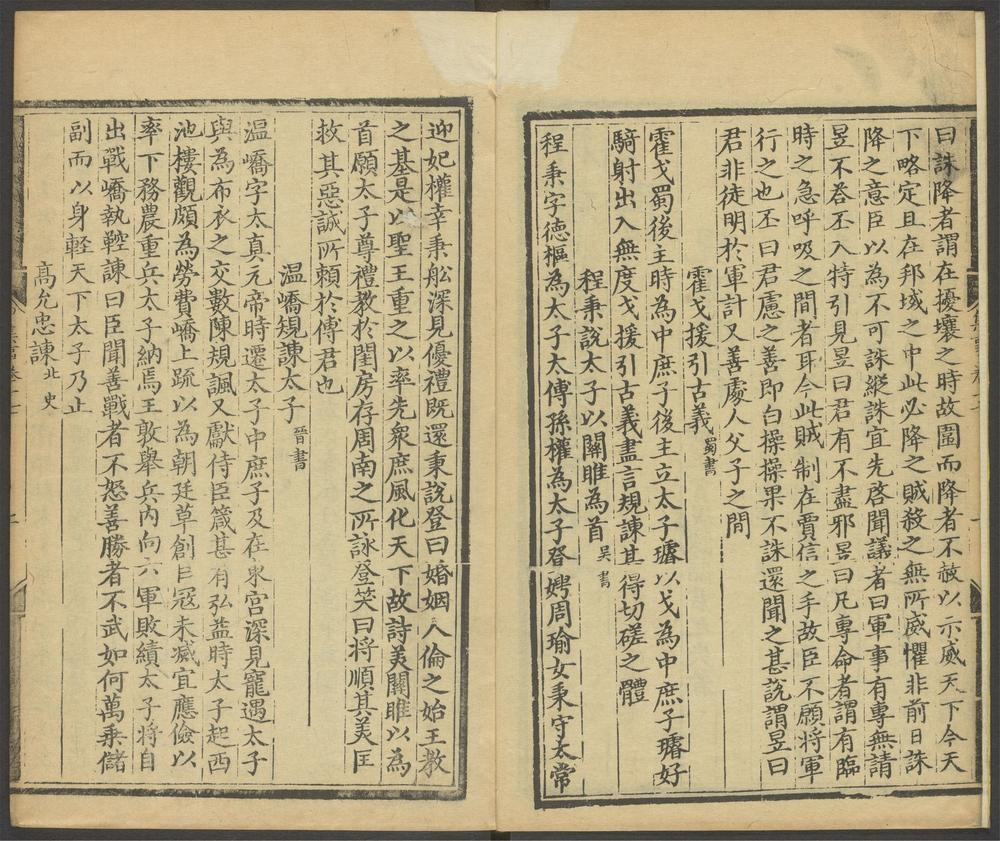 曰誅降者謂在擾壤之時故圍而降者不赦以示威天下今天
下略定且在邦域之中此必降之賊殺之無所威懼非前日誅
降之意臣以為不可誅縱誅宜先啓聞議者曰軍事有專無請
昱不荅丕入特引見昱曰君有不盡邪昱曰凡專命者謂有臨
時之急呼吸之間者耳今此賊制在賈信之手故臣不願將軍
行之也丕曰君慮之善即白操操果不誅還聞之甚說謂昱曰
君非徒明於軍計又善處人父子之間
霍戈援引古義蜀書
霍戈蜀後主時為中庶子後主立太子璿以戈為中庶子璿好
騎射出入無度戈援引古義盡言規諫甚得切磋之體
程秉說太子以關雎為首吳書
程秉字德樞為太子太傅孫權為太子登娉周瑜女秉守太常
迎妃權幸秉舩深見優禮既還秉說登曰婚姻人倫之始王教
之基是以聖王重之以率先衆庶風化天下故詩美關雎以為
首願太子尊禮教於閨房存周南之所詠登笑曰将順其美匡
救其惡誠所賴於傅君也
溫嶠規諫太子晉書
溫嶠字太真元帝時遷太子中庶子及在東宮深見寵遇太子
與為布衣之交數陳規諷又獻侍臣箴甚有弘益時太子起西
池樓觀頗為勞費嶠上疏以為朝廷草創巨寇未滅宜應儉以
率下務農重兵太子納焉王敦舉兵内向六軍敗績太子将自
出戰嶠執鞚諫曰臣聞善戰者不怒善勝者不武如何萬乗儲
副而以身輕天下太子乃止
高允忠諫北史